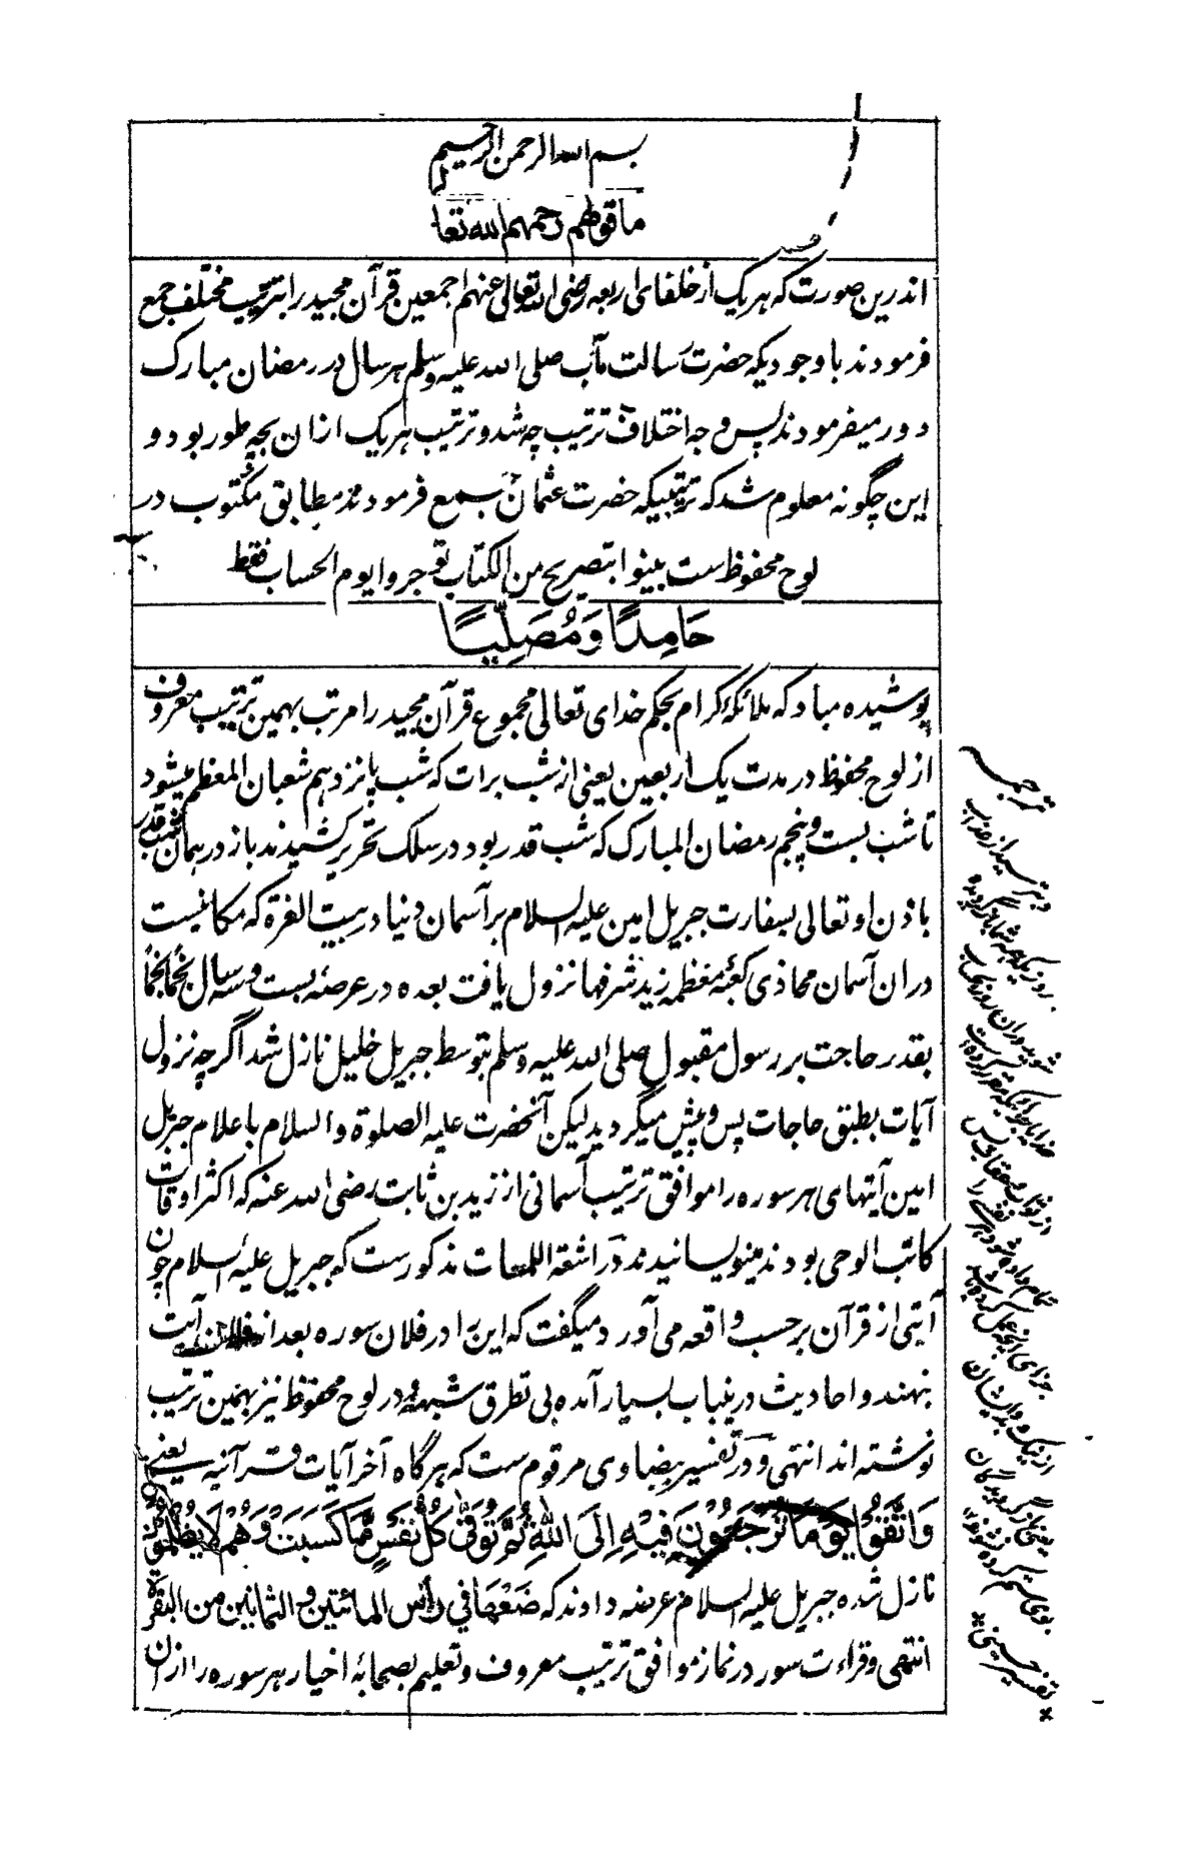 بسم الله الرحمن الرحیم
ما قولهم رحمهم الله تعا
اندرین صورت که هر یک از خلفای اربعه رضی الله تعالی عنهم اجمعین قرآن مجید را بترتیب مختلف جمع
فرمودند با وجودیکه حضرت رسالت مآب صلی الله علیه وسلم هر سال در رمضان مبارک
دور میفرمودند پس وجه اختلاف ترتیب چه شد و ترتیب هر یک ازان بچه طور بود و
این چگونه معلوم شد که ترتیبیکه حضرت عثمان جمع فرمودند مطابق مکتوب در
لوح محفوظ ست بینوا بتصریح من الکتاب توجروا یوم الحساب فقط
حَامِدًا وَمُصَلِّیًا
پوشیده مباد که ملائکۀ کرام بحکم خدای تعالی مجموع قرآن مجید را مرتب بهمین ترتیب معروف
از لوح محفوظ در مدت یک اربعین یعنی از شب برات که شب پانزدهم شعبان المعظم میشود
تا شب بست و پنجم رمضان المبارک که شب قدر بود در سلک تحریر کشیدند باز در همان شب قدر
باذن او تعالی بسفارت جبریل امین علیه السلام بر آسمان دنیا در بیت العزة که مکانیست
دران آسمان محاذی کعبۀ معظمه زید شرفها نزول یافت بعده در عرصۀ بست و سه سال نجمًا نجمًا
بقدر حاجت بر رسول مقبول صلی الله علیه وسلم بتوسط جبریل خلیل نازل شد اگرچه نزول
آیات بطبق حاجات پس و پیش میگردید لیکن آنحضرت علیه الصلوة والسلام باعلام جبریل
امین آیتهای هر سوره را موافق ترتیب آسمانی از زید بن ثابت رضی الله عنه که اکثر اوقات
کاتب الوحی بودند مینویسانیدند در اشعة اللمعات مذکورست که جبریل علیه السلام چون
آیتی از قرآن بر حسب واقعه می آورد میگفت که این را در فلان سوره بعد از فلان آیت
نهند و احادیث درینباب بسیار آمده بی تطرق شبهه و در لوح محفوظ نیز بهمین ترتیب
نوشته اند انتهی و در تفسیر بیضاوی مرقوم ست که هر گاه آخر آیات قرآنیه یعنی
وَاتَّقُوا یَوْمًا تُرْجَعُونَ فِیْهِ إِلَى اللهِ ثُمَّ تُوَفّٰی کُلُّ نَفْسٍ مَّا کَسَبَتْ وَهُمْ لَا یُظْلَمُوْنَ
نازل شده جبریل علیه السلام عرضه داوند که ضَعْهَا فی رأس المائتین والثمانین من البقرة
انتهی وقراءت سور در نماز موافق ترتیب معروف و تعلیم بصحابۀ اخیار هر سوره را ازان
ترجمه
و بترسید از عذاب
روزیکه همه شما بازگردیده
شوید دران روز بحساب
از نیک و بد و ایشان
تفسیر حسینی